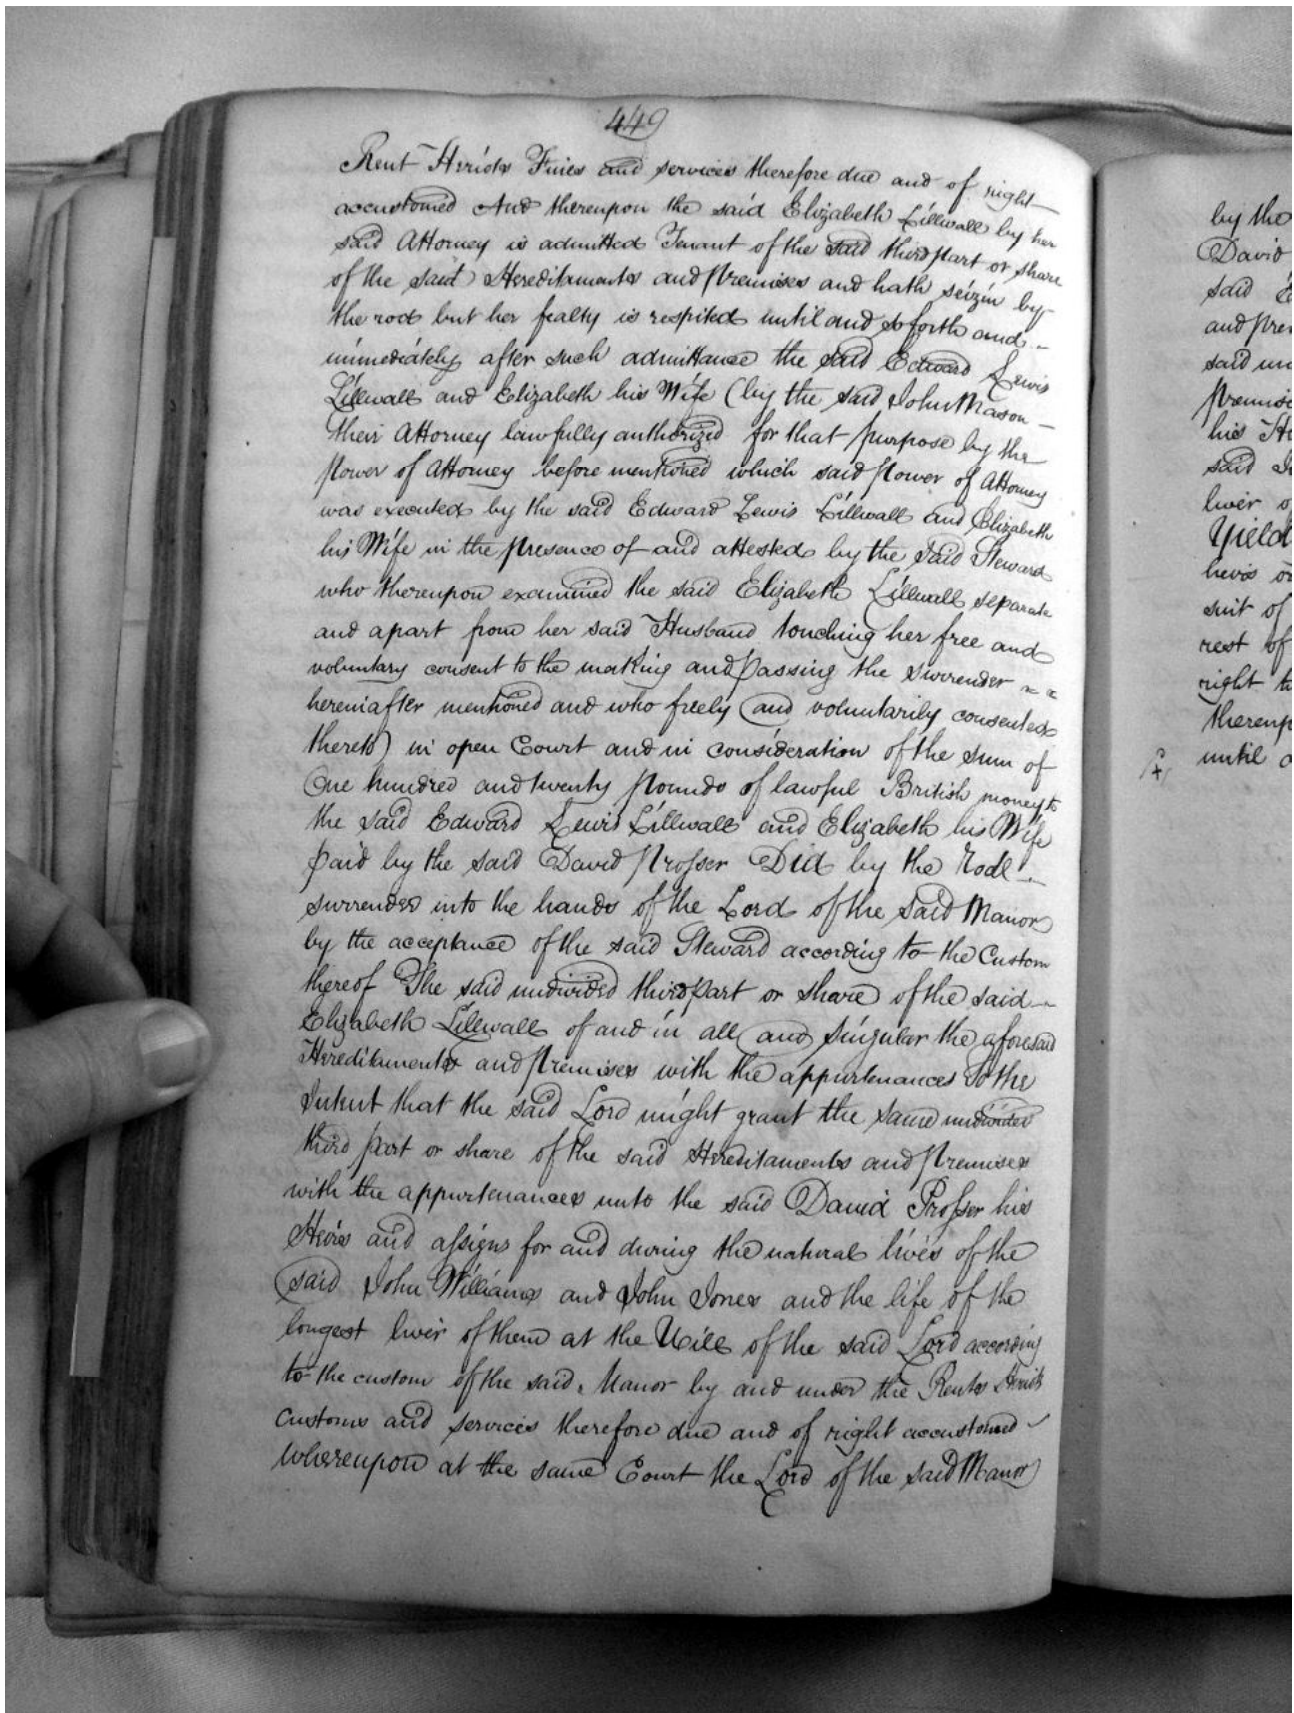 449
Rent Heriots Fines and services therefore due and of right
accustomed And thereupon the said Elizabeth Lillwall by her
said Attorney is admitted Tenant of the said third part or share
of the said Hereditaments and Premises and hath seizin by
the rod but her fealty is respited until and so forth and
immediately after such admittance the said Edward Lewis
Lillwall and Elizabeth his Wife (by the said John Mason
their Attorney lawfully authorized for that purpose by the
Power of Attorney before mentioned which said Power of Attorney
was executed by the said Edward Lewis Lillwall and Elizabeth
his Wife in the presence of and attested by the said Steward
who thereupon examined the said Elizabeth Lillwall separate
and apart from her said Husband touching her free and
voluntary consent to the making and Passing the surrender
hereinafter mentioned and who freely and voluntarily consented
thereto) in open Court and in consideration of the sum of
One hundred and twenty Pounds of lawful British money to
the said Edward Lewis Lillwall and Elizabeth his Wife
Paid by the said David Prosser Did by the Rod
surrender into the hands of the Lord of the said Manor
by the acceptance of the said Steward according to the Custom
thereof The said undivided third Part or share of the said
Elizabeth Lillwall of and in all and singular the aforesaid
Hereditaments and Premises with the appurtenances To the
Intent that the said Lord might grant the same undivided
third part or share of the said Hereditaments and Premises
with the appurtenances unto the said David Prosser his
Heirs and assigns for and during the natural lives of the
said John Williams and John Jones and the life of the
longest liver of them at the Will of the said Lord according
to the custom of the said Manor by and under the Rents Heriots
customs and services therefore due and of right accustomed
Whereupon at the same Court the Lord of the said Manor
by the
David
said
and Pre
said un
Premise
his He
said
liver o
Yield
heirs or
suit of
rest of
right
thereup
until a